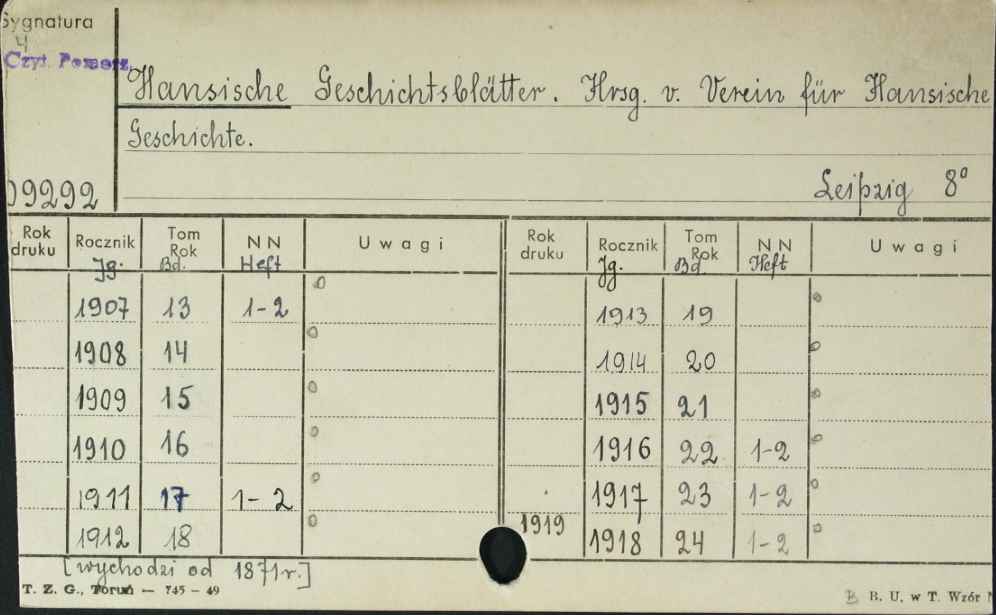 Sygnatura
4
Czyt. Pomorz.
Hansische Geschichtsblätter. Hrsg. v. Verein für Hansische
Geschichte.
09292
Leipzig 8°
Rok druku Rocznik Jg. Tom Rok Bd. NN Heft Uwagi Rok druku Rocznik Jg. Tom Rok Bd. NN Heft Uwagi
1907 13 1-2 1913 19
1908 14 1914 20
1909 15 1915 21
1910 16 1916 22 1-2
1911 17 1-2 1917 23 1-2
1912 18 1919 1918 24 1-2
[wychodzi od 1871 r.]
T. Z. G., Toruń — 745 — 49
B. U. w T. Wzór